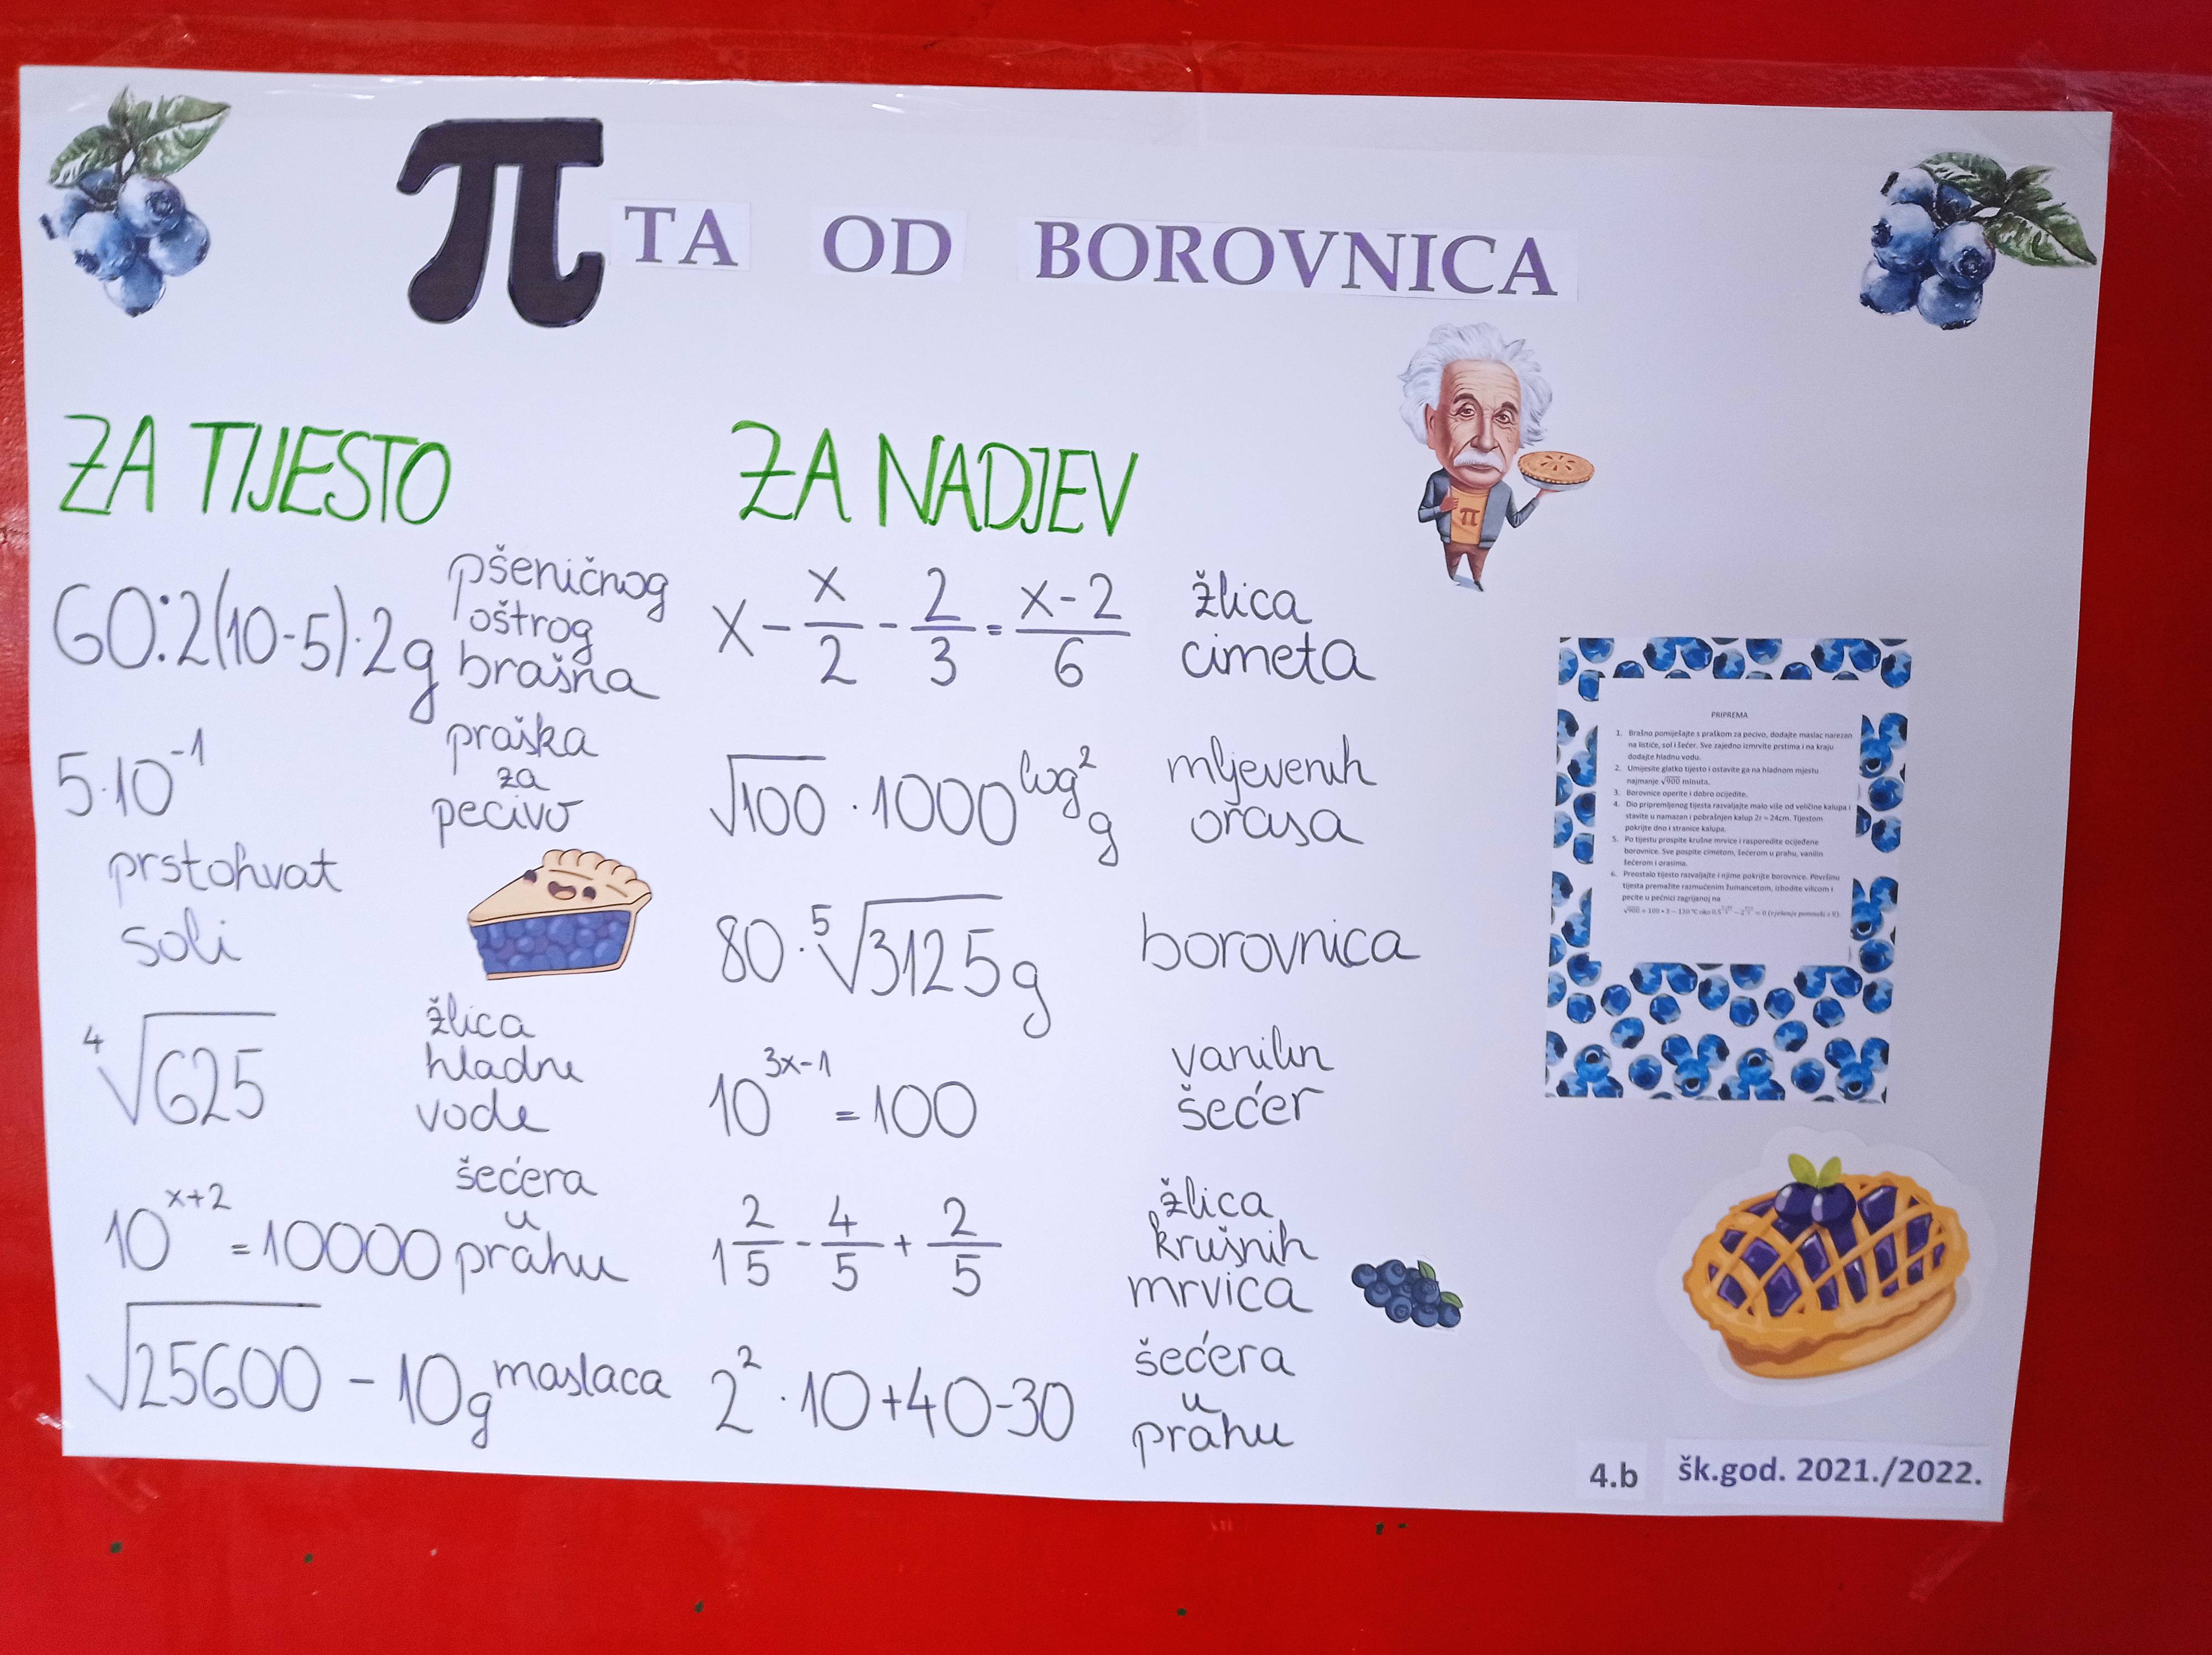 πTA OD BOROVNICA
ZA TIJESTO
60:2(10-5)·2g pšeničnog oštrog brašna
5·10⁻¹ praška za pecivo
prstohvat
soli
⁴√625 žlica hladne vode
10ˣ⁺² = 10000 šećera u prahu
√25600 - 10g maslaca
ZA NADJEV
x - x/2 - 2/3 = x-2/6 žlica cimeta
√100 · 1000^log² g mljevenih orasa
80·⁵√3125 g borovnica
10³ˣ⁻¹ = 100 vanilin šećer
1 2/5 - 4/5 + 2/5 žlica krušnih mrvica
2²·10+40-30 šećera u prahu
π
PRIPREMA
1. Brašno pomiješajte s praškom za pecivo, dodajte maslac narezan
na listiće, sol i šećer. Sve zajedno izmrvite prstima i na kraju
dodajte hladnu vodu.
2. Umijesite glatko tijesto i ostavite ga na hladnom mjestu
najmanje √900 minuta.
3. Borovnice operite i dobro ocijedite.
4. Dio pripremljenog tijesta razvaljajte malo više od veličine kalupa i
stavite u namazan i pobrašnjen kalup 2r = 24cm. Tijestom
pokrijte dno i stranice kalupa.
5. Po tijestu prospite krušne mrvice i rasporedite ocijeđene
borovnice. Sve pospite cimetom, šećerom u prahu, vanilin
šećerom i orasima.
6. Preostalo tijesto razvaljajte i njime pokrijte borovnice. Površinu
tijesta premažite razmućenim žumancetom, izbodite vilicom i
pecite u pećnici zagrijanoj na
4.b šk.god. 2021./2022.